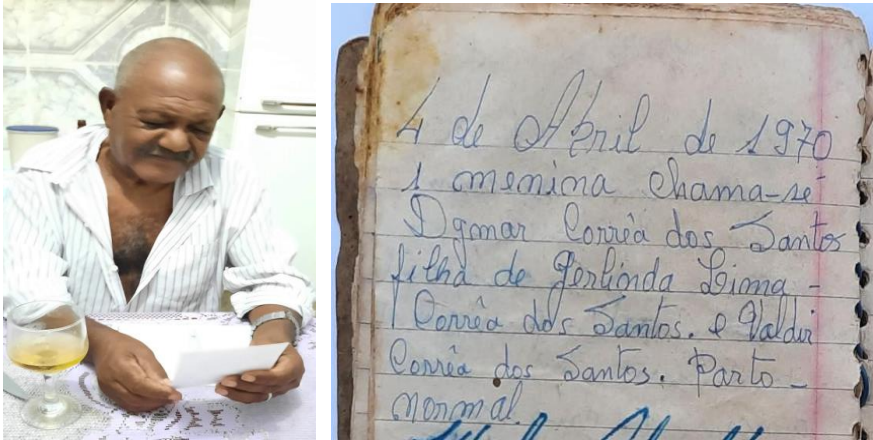 4 de Abril de 1970
1 menina chama-se
Dgmar Corrêa dos Santos
filha de Gerlinda Lima -
Corrêa dos Santos. e Valdir
Corrêa dos Santos. Parto -
normal.